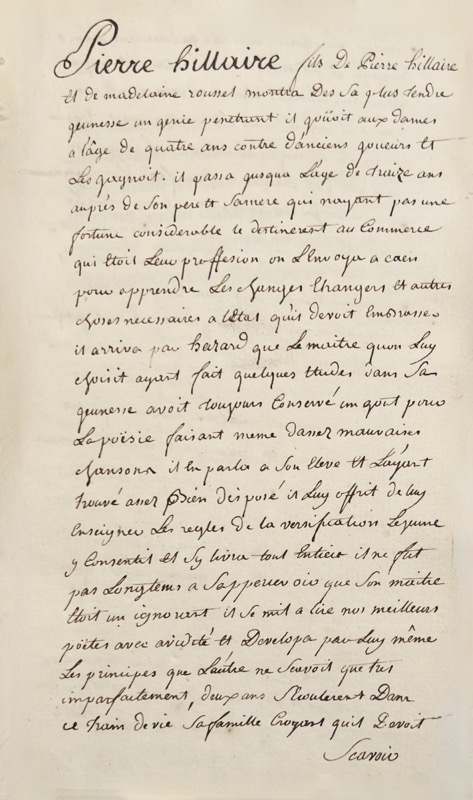 Pierre hillaire fils De Pierre hillaire
Et de madelaine roussel montra Des Sa plus tendre
geunesse un genie penetrant il goüoit aux dames
a lâge de quatre ans contre dánciens goueurs Et
Les gagnoit. il passa gusqua Láge de treize ans
auprés de Son pere et Samere qui nayant pas une
fortune considerable le destinerent au Commerce
qui Etoit Leur proffesion on LEnvoya a caen
pour apprendre Les changes Etrangers Et autres
choses necessaires a lEtat quil devoit Embrasser
il arriva par hazard que Le maitre quon Luy
choisit ayant fait quelques Etudes dans Sa
geunesse avoit toujours Conservé un gout pour
La poësie faisant meme dassez mauvaises
chansons il En parla a Son Eleve Et Láyant
trouvé assez Bien disposé il Luy offrit de luy
Enseigner Les regles de la versification Lejeune
y Consentit Et Sy livra tout Entier il ne fut
pas Longtems a Sappercevoir que Son maitre
Etoit un ignorant il Se mit a lire nos meilleurs
poëtes avec avidité Et Developa par Luy même
Les principes que Lautre ne Scavoit que tres
imparfaitement, deux ans Sécoulerent Dans
ce train de vie Safamille Croyant quil Devoit
Scavoir